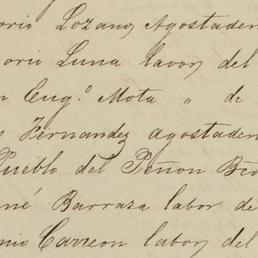 orio Lozano, Agostader
orio Luna lavor del
n Eug.º Mota " de
Fernandez agostader
Pueblo del Peñon Bco
né Barraza labor de
nio Carreon labor, del